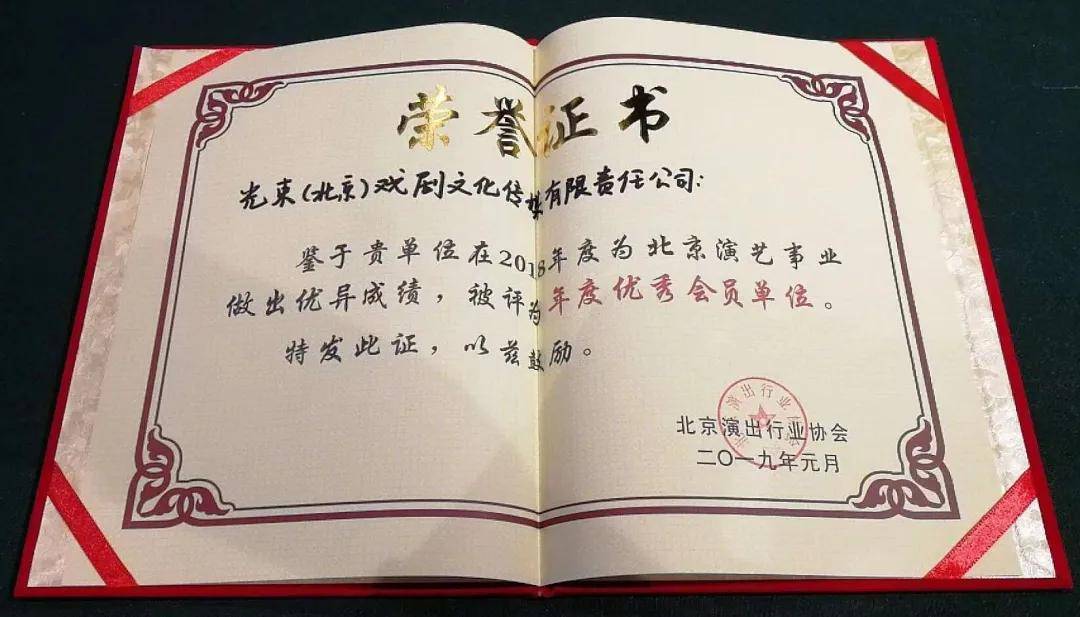 荣誉证书
光束(北京)戏剧文化传媒有限责任公司:
鉴于贵单位在2018年度为北京演艺事业
做出优异成绩，被评为年度优秀会员单位。
特发此证，以兹鼓励。
北京演出行业协会
二〇一九年元月